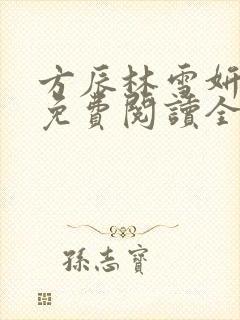 方辰林雪妍
免費閱讀全
孫志寶